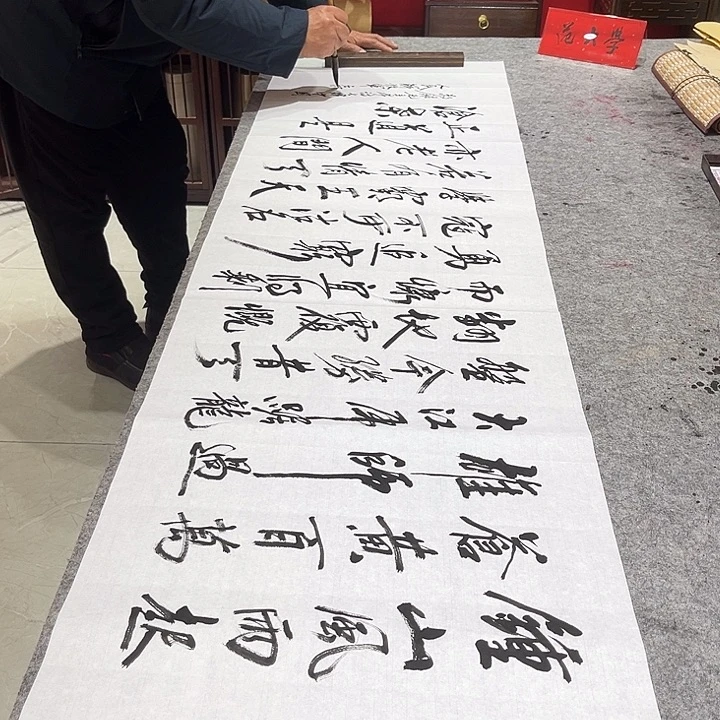 鐘山風雨起
蒼黃百萬
雄師過
大江虎踞龍
盤今勝昔天
翻地覆慨
而慷宜將剩
勇追窮
寇不可沽名
學霸王天
若有情天
亦老人間
正道是
滄桑